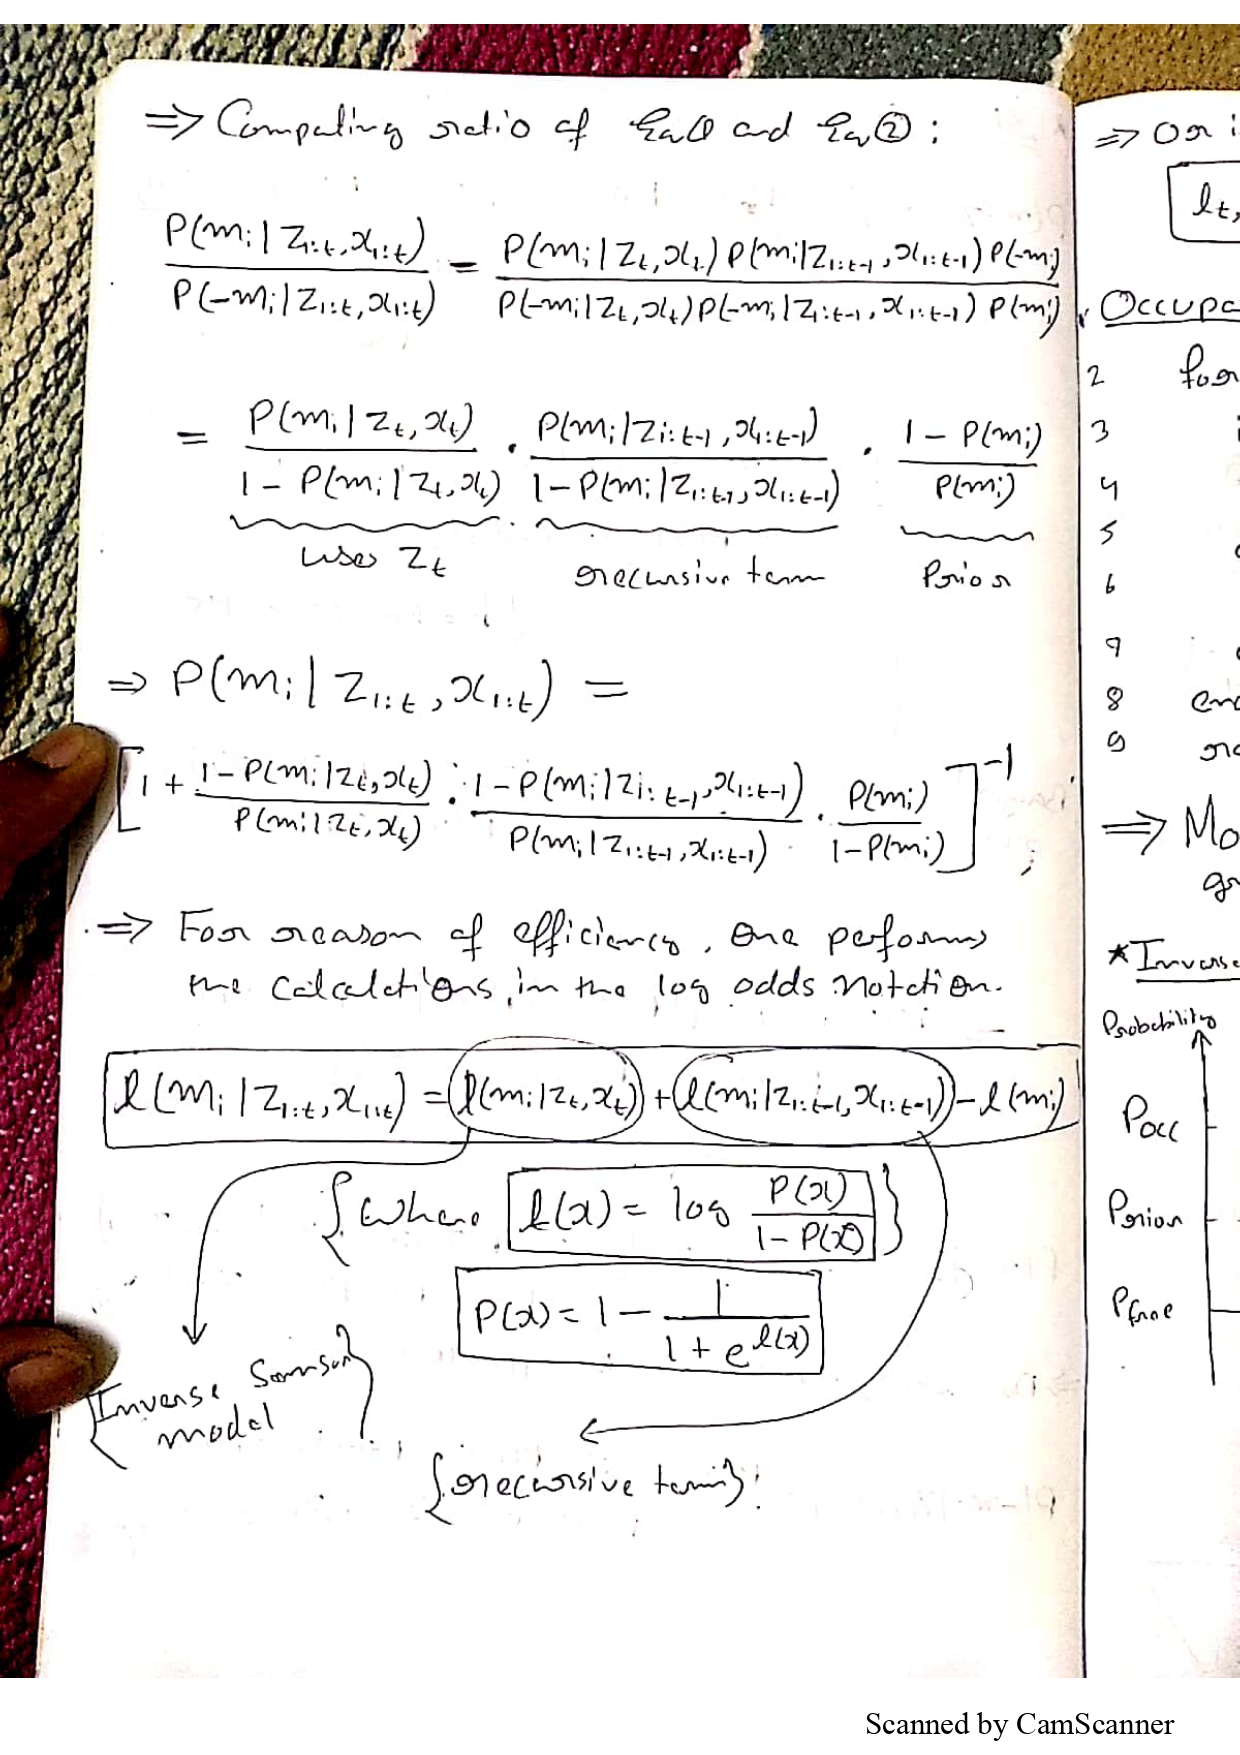 ⇒ Computing ratio of Eq① and Eq②:
P(mᵢ | Z₁:ₜ, x₁:ₜ) / P(¬mᵢ | Z₁:ₜ, x₁:ₜ) = P(mᵢ | Zₜ, xₜ) P(mᵢ | Z₁:ₜ₋₁, x₁:ₜ₋₁) P(¬mᵢ) / P(¬mᵢ | Zₜ, xₜ) P(¬mᵢ | Z₁:ₜ₋₁, x₁:ₜ₋₁) P(mᵢ)
= P(mᵢ | Zₜ, xₜ) / 1 - P(mᵢ | Zₜ, xₜ) · P(mᵢ | Z₁:ₜ₋₁, x₁:ₜ₋₁) / 1 - P(mᵢ | Z₁:ₜ₋₁, x₁:ₜ₋₁) · 1 - P(mᵢ) / P(mᵢ)
uses Zₜ recursive term Prior
⇒ P(mᵢ | Z₁:ₜ, x₁:ₜ) =
[1 + 1 - P(mᵢ | Zₜ, xₜ) / P(mᵢ | Zₜ, xₜ) · 1 - P(mᵢ | Z₁:ₜ₋₁, x₁:ₜ₋₁) / P(mᵢ | Z₁:ₜ₋₁, x₁:ₜ₋₁) · P(mᵢ) / 1 - P(mᵢ)]⁻¹ ;
⇒ For reason of efficiency, one performs
the calculations, in the log odds notation.
l(mᵢ | Z₁:ₜ, x₁:ₜ) = l(mᵢ | Zₜ, xₜ) + l(mᵢ | Z₁:ₜ₋₁, x₁:ₜ₋₁) - l(mᵢ)
{where l(x) = log P(x) / 1 - P(x)}
P(x) = 1 - 1 / 1 + e^l(x)
{Inverse Sensor
model}
{recursive term};
⇒ Or
lₜ,
Occupa
2 for
3
4
5
6
7
8 end
9
⇒ Mo
gr
★ Inverse
Probability
Pocc
Pprior
Pfree
Scanned by CamScanner